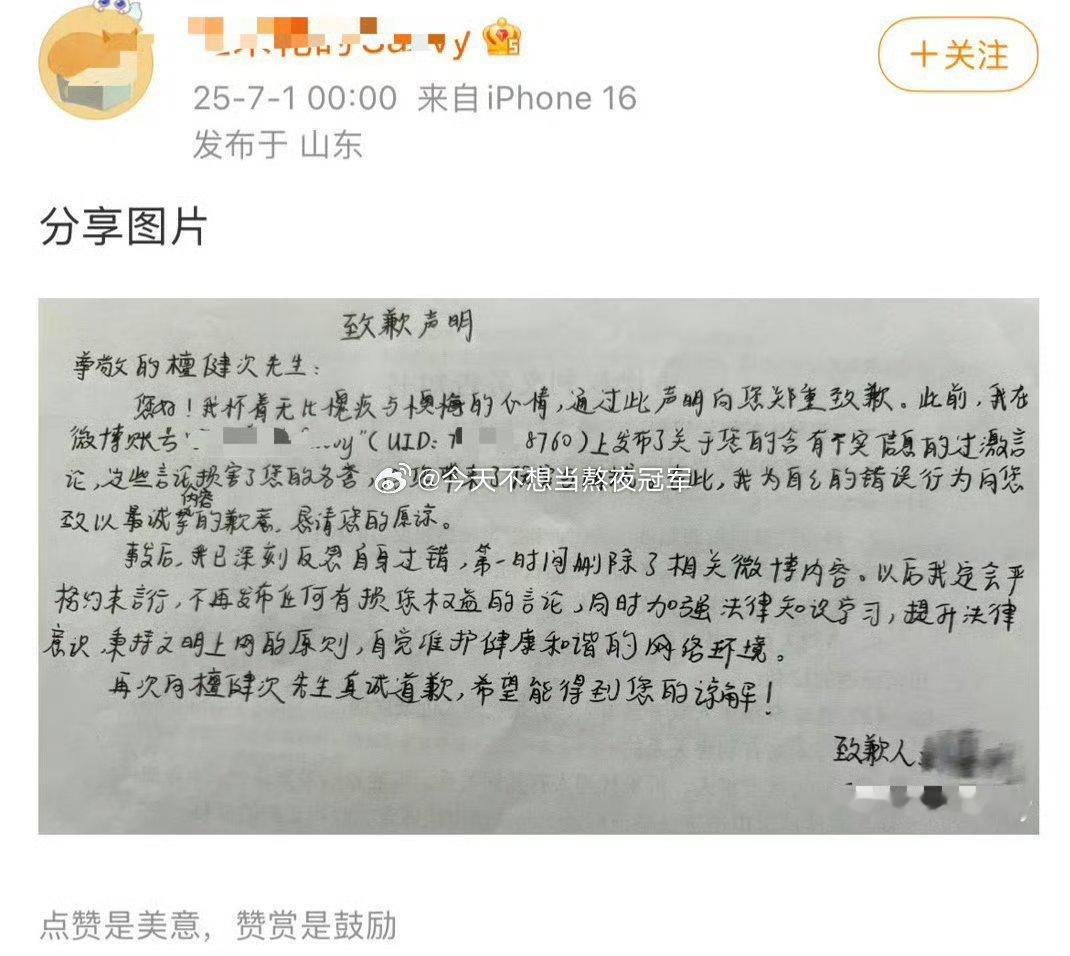 的Ca vy
+关注
25-7-1 00:00 来自 iPhone 16
发布于 山东
分享图片
致歉声明
尊敬的檀健次先生:
您好!我怀着无比愧疚与懊悔的心情,通过此声明向您郑重致歉。此前,我在
微博账号" vy"(UID: 8760)上发布了关于您的含有不实信息的过激言
论,这些言论损害了您的名誉, 此,我为自己的错误行为向您
@今天不想当熬夜冠军
内容
致以最诚挚的歉意,恳请您的原谅。
事发后,我已深刻反思自身过错,第一时间删除了相关微博内容。以后我定会严
格约束言行,不再发布任何有损您权益的言论,同时加强法律知识学习,提升法律
意识,秉持文明上网的原则,自觉维护健康和谐的网络环境。
再次向檀健次先生真诚道歉,希望能得到您的谅解!
致歉人:
点赞是美意,赞赏是鼓励